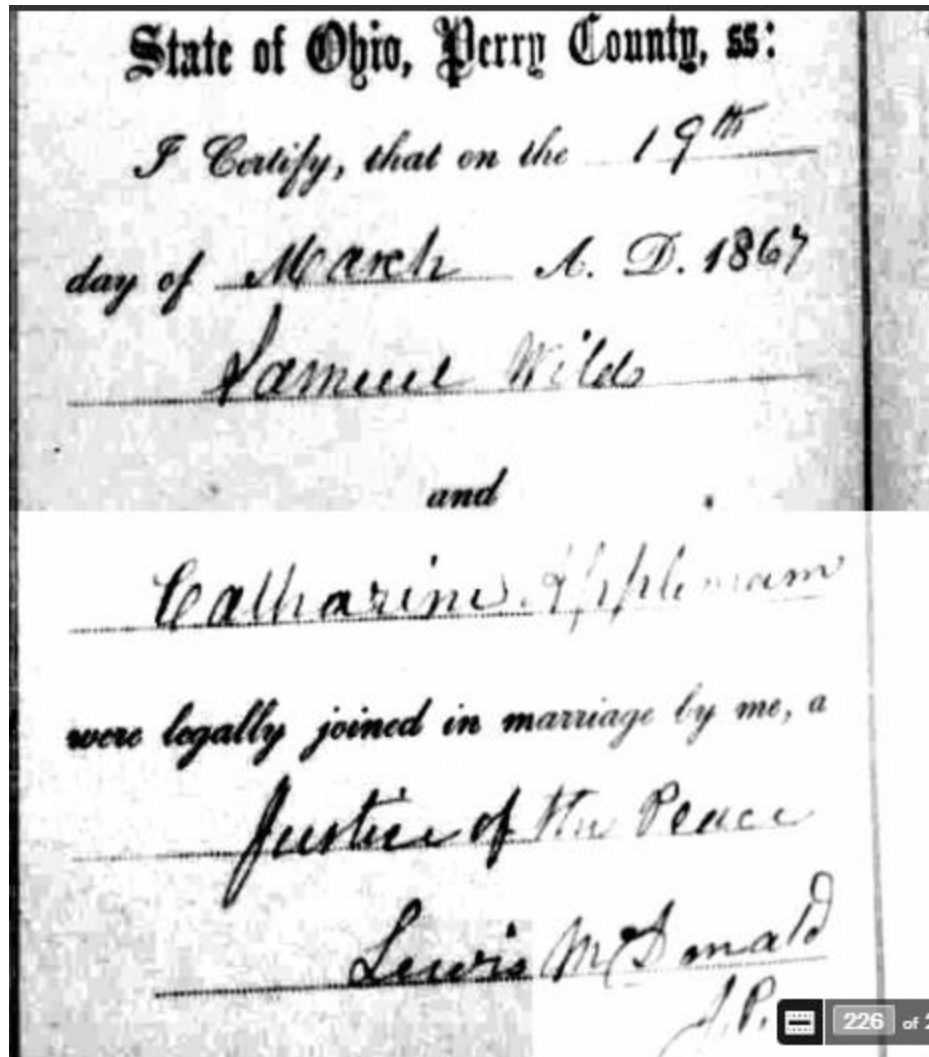 State of Ohio, Perry County, ss:
I Certify, that on the 19th
day of March A. D. 1867
Samuel Wilds
and
Catharine Appleman
were legally joined in marriage by me, a
Justice of the Peace
Lewis McDonald
J.P.
226 of 2